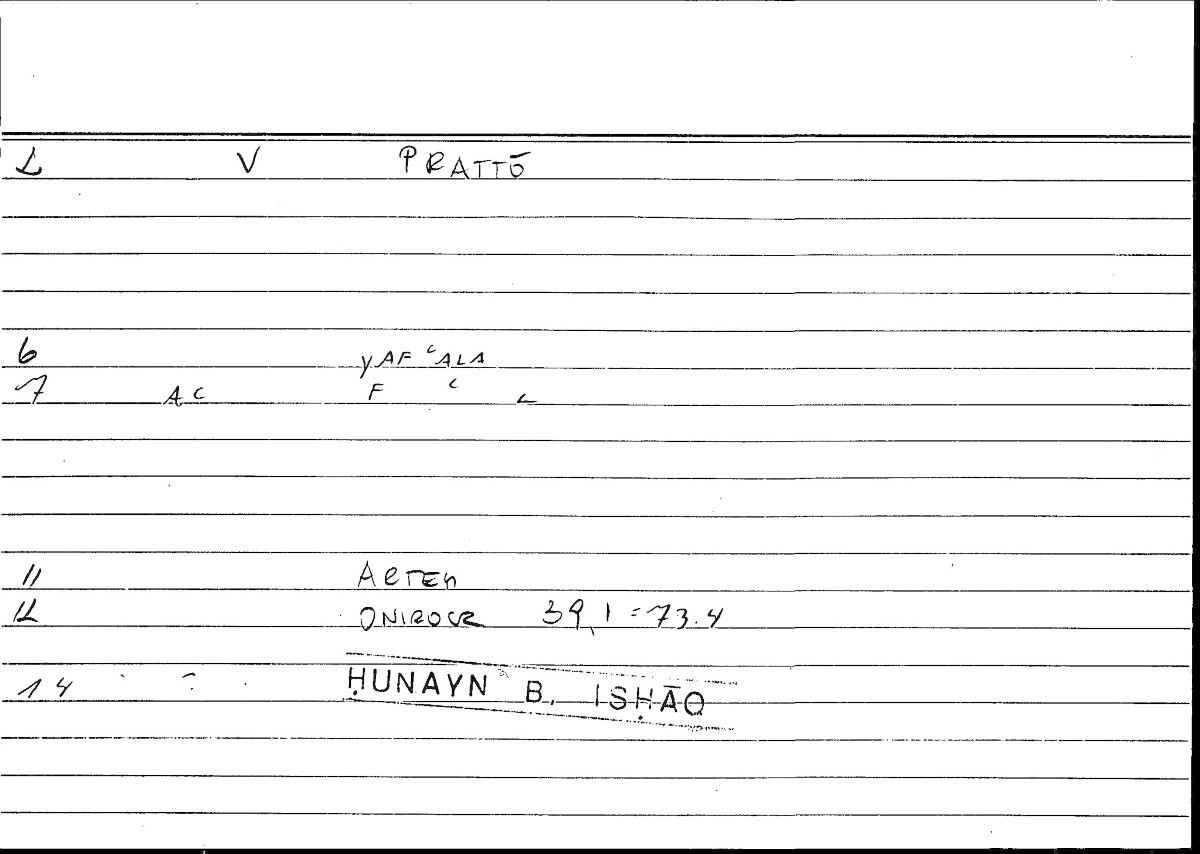 2 V PRATTŌ
6 YAF ʿALA
7 AC F ʿ L
11 ARTEM
12 ONIROCR 39,1 = 73.4
14 ḤUNAYN B. ISḤĀQ